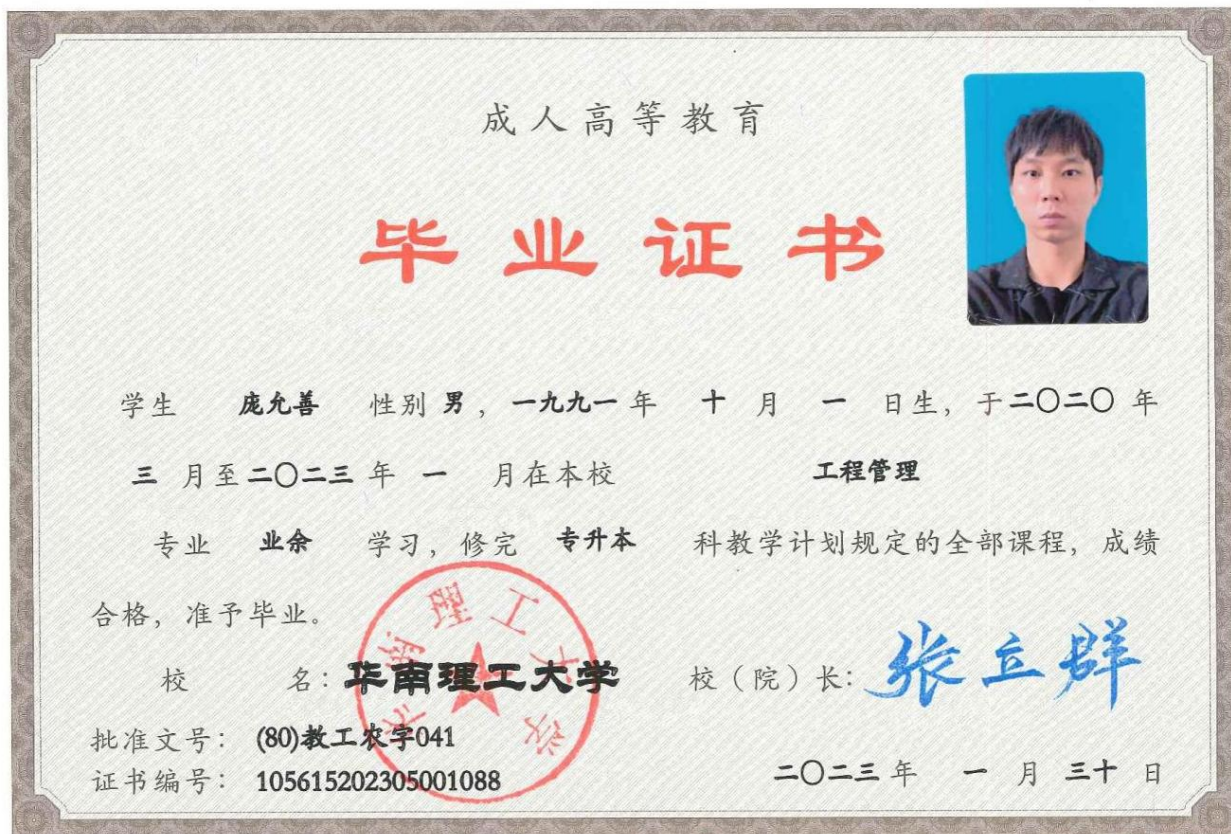 成人高等教育
毕业证书
学生 庞允善 性别 男，一九九一 年 十 月 一 日生，于二〇二〇 年
三 月至二〇二三 年 一 月在本校 工程管理
专业 业余 学习，修完 专升本 科教学计划规定的全部课程，成绩
合格，准予毕业。
校 名：华南理工大学 校（院）长：张立群
华南理工大学
批准文号： (80)教工农字041
证书编号： 105615202305001088
二〇二三 年 一 月 三十 日